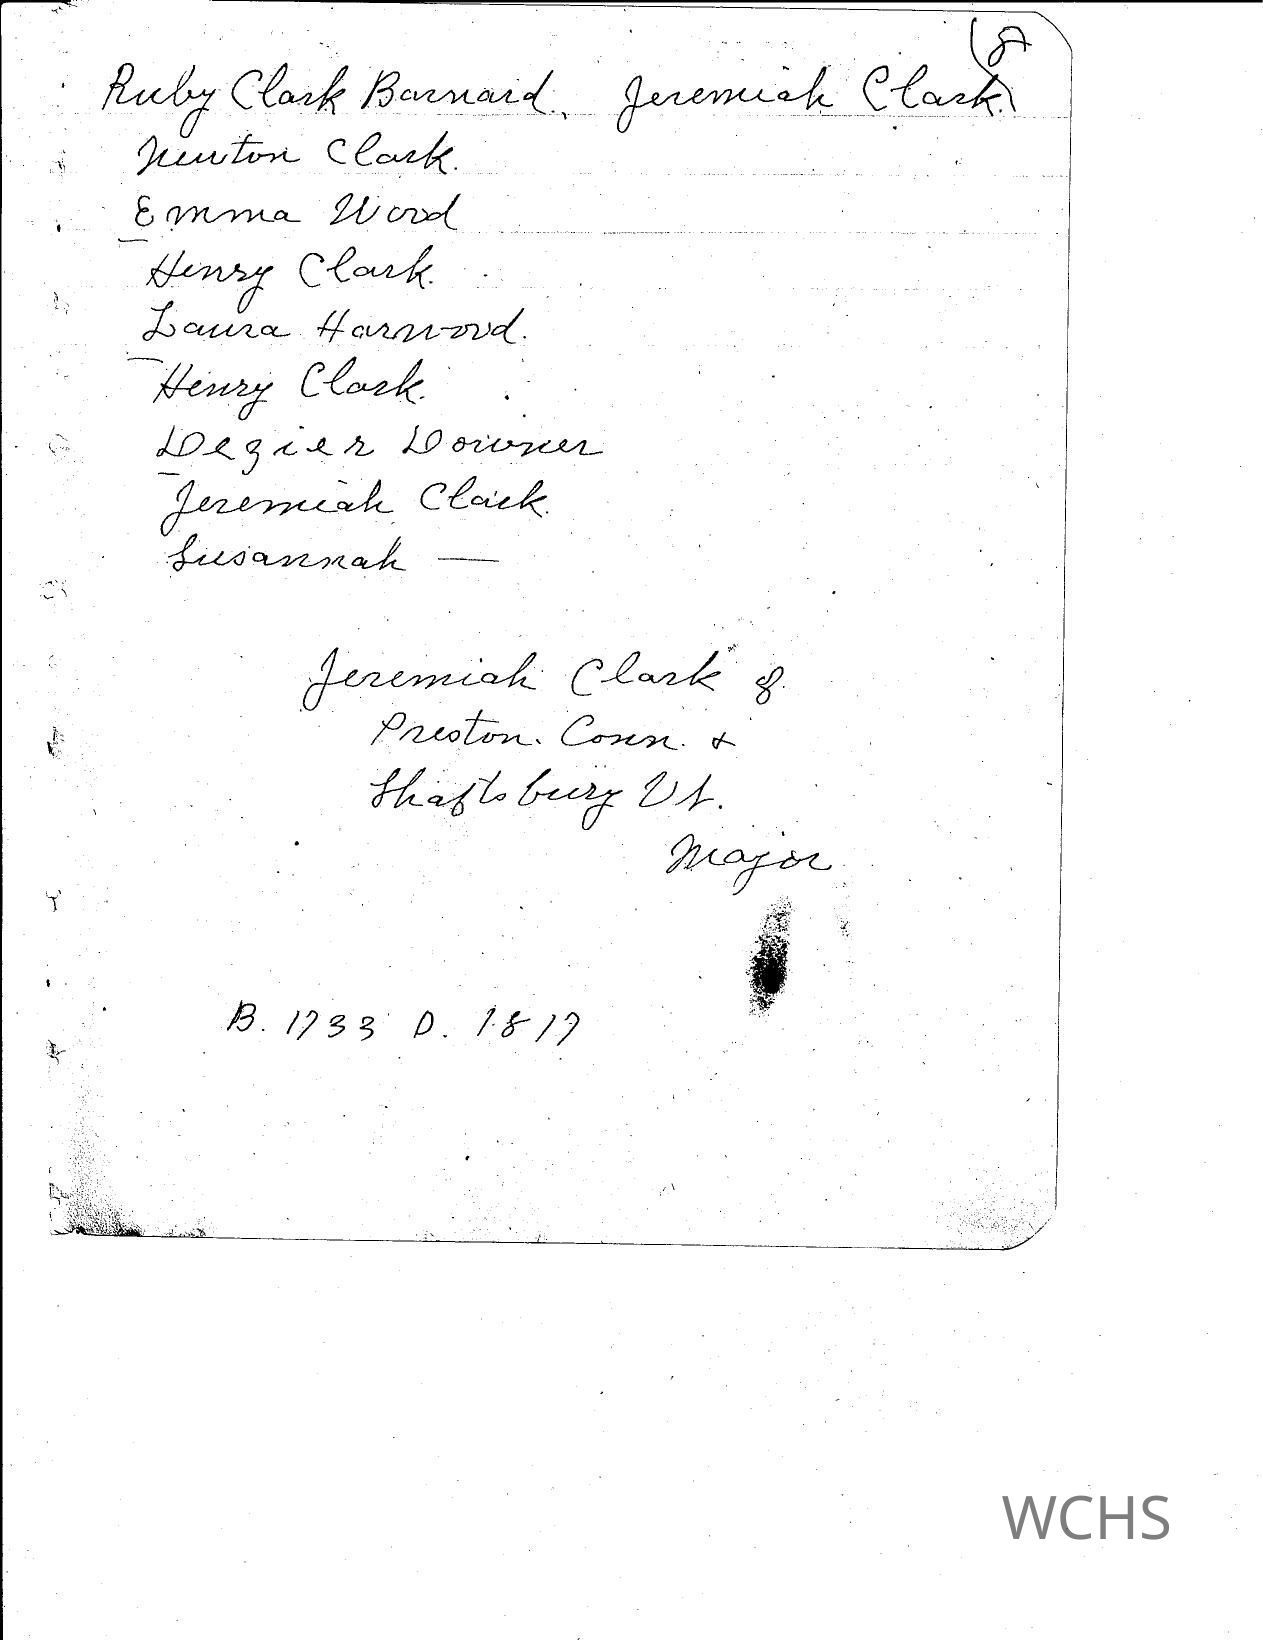 (8)
Ruby Clark Barnard, Jeremiah Clark.
Newton Clark.
Emma Wood
Henry Clark.
Laura Harwood.
Henry Clark.
Dezier Downer
Jeremiah Clark.
Susannah —
Jeremiah Clark of
Preston. Conn. &
Shaftsbury Vt.
Major
B. 1733 D. 1817
WCHS